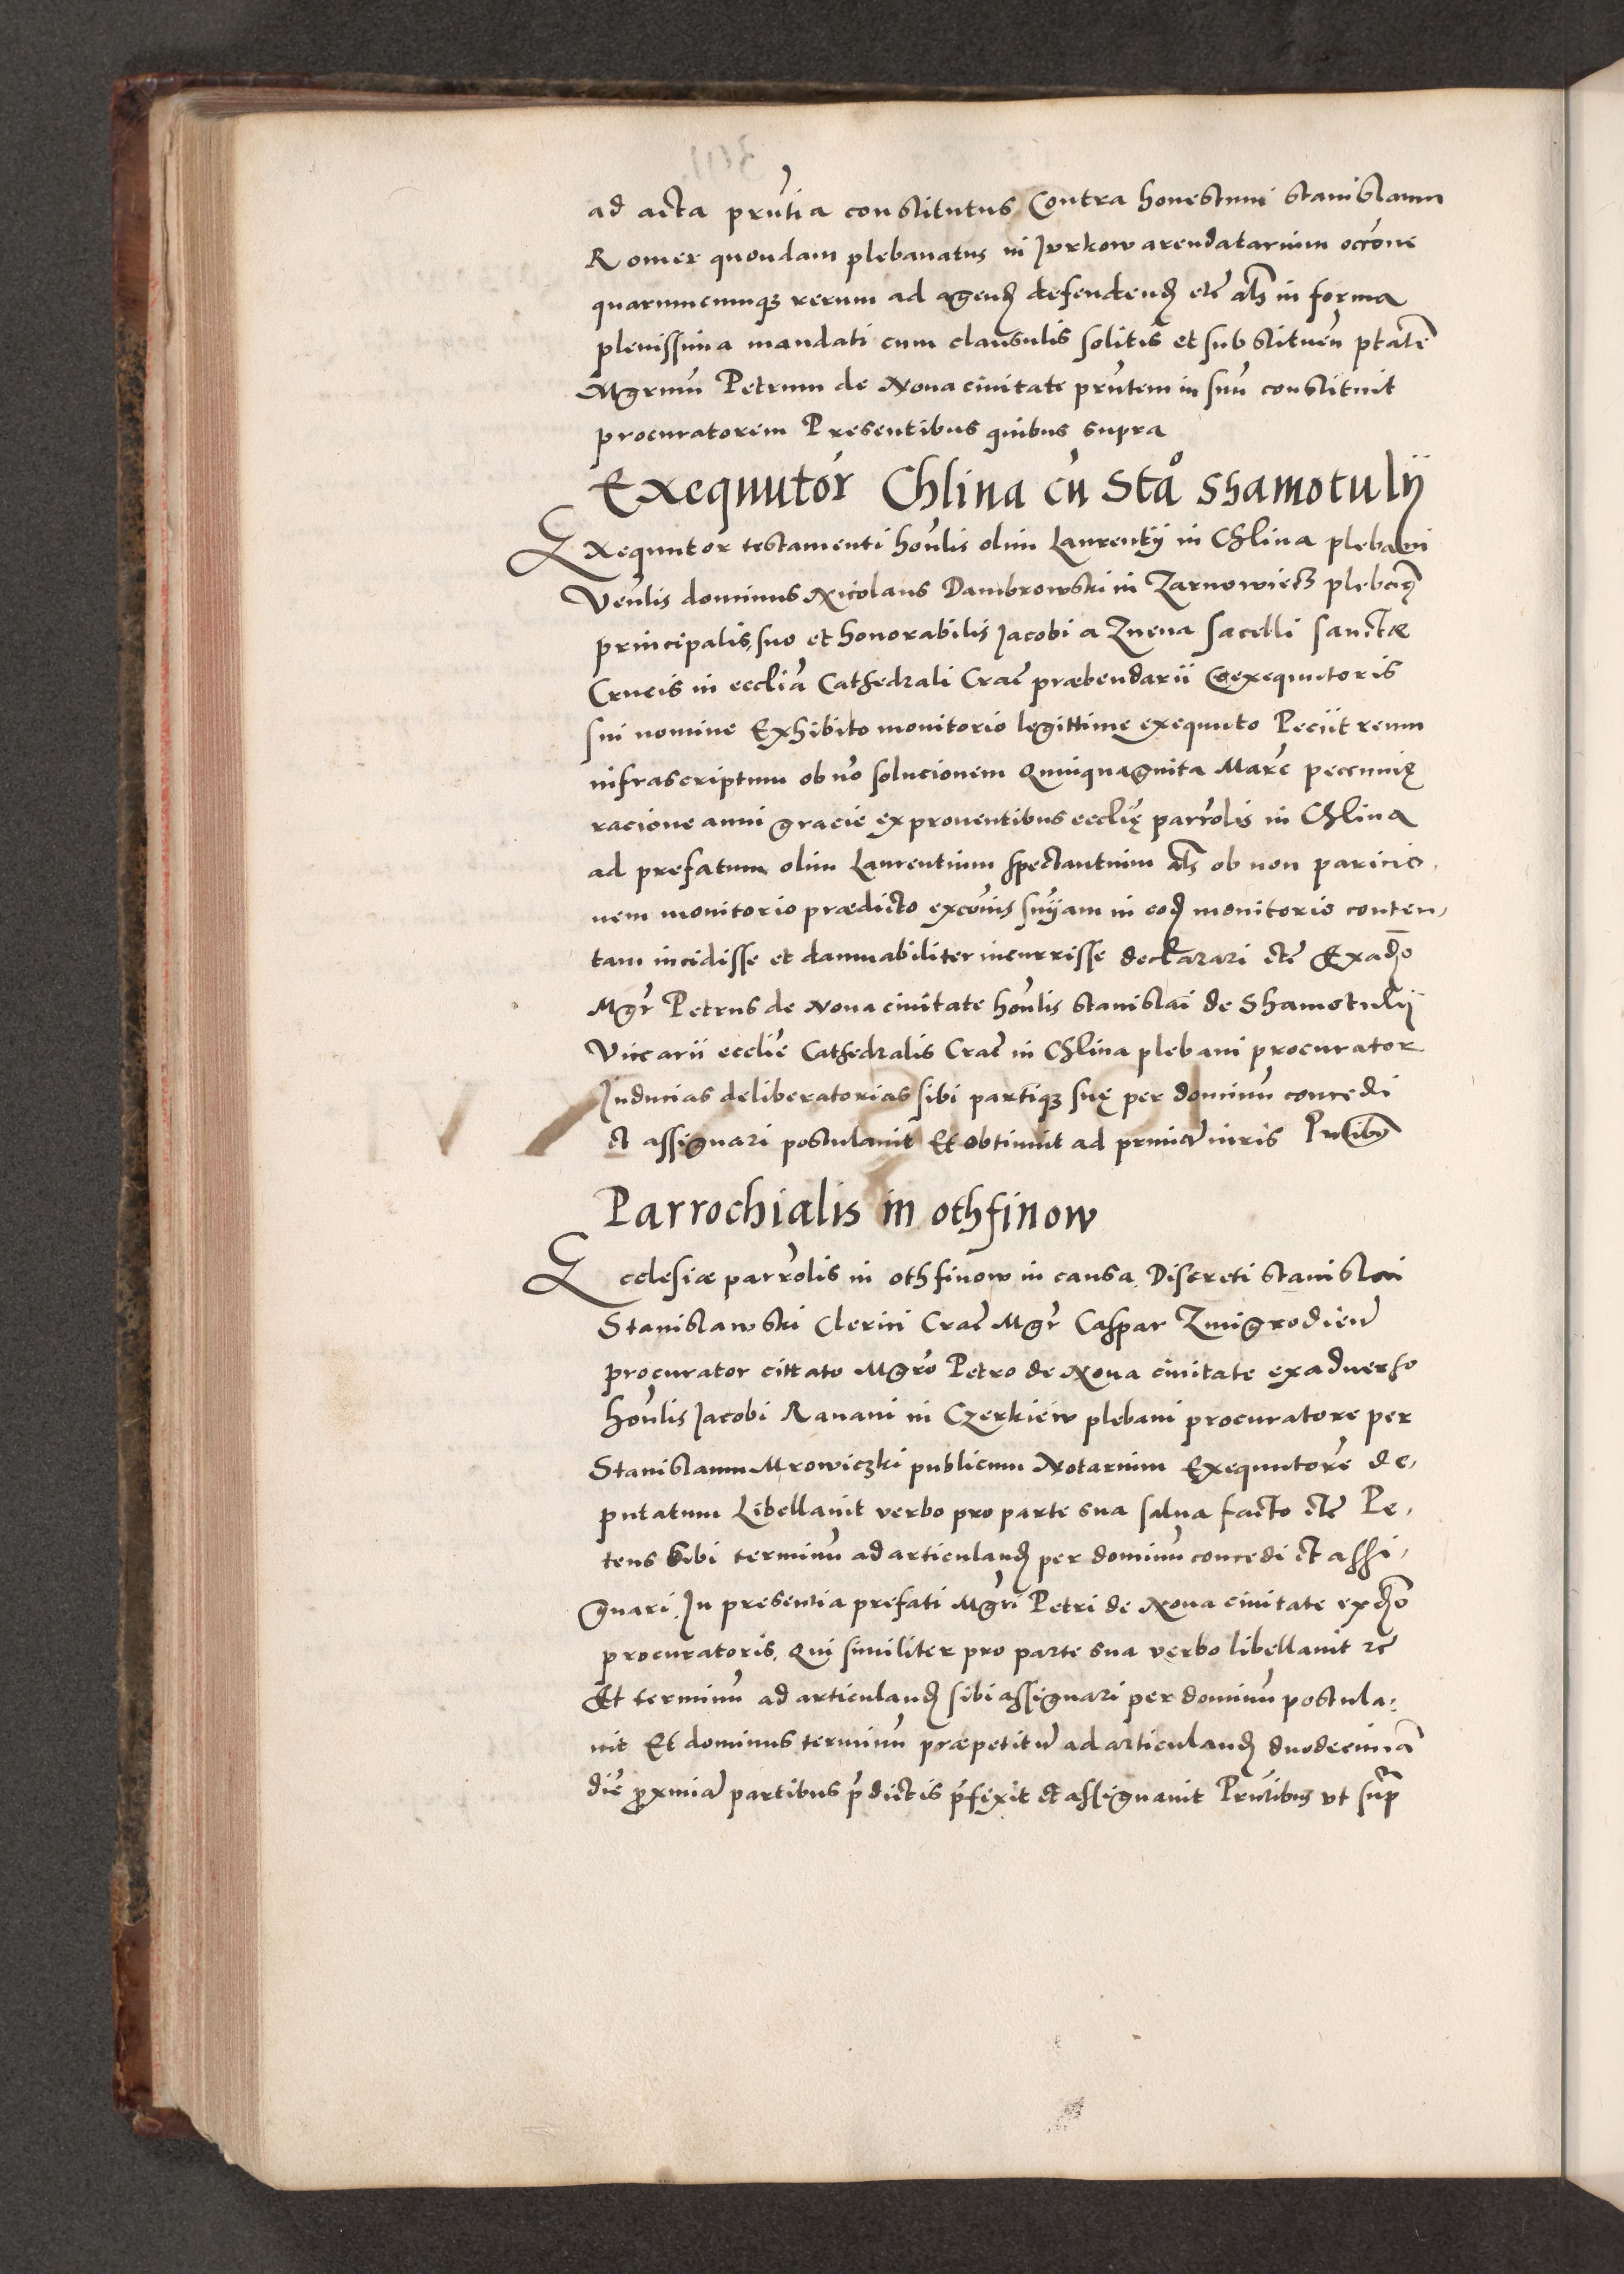 ad acta pruntia constitutus Contra honestum Stanislaum
Romer quondam plebanatus in Jvrkow arendatarium occrone
quarumcumque rerum ad agend defendend etc als in forma
plenissima mandati cum clausulis solitis et substituen ptatem
Mgrum Petrum de Noua ciuitate pruntem in suum constituit
procuratorem Presentibus quibus supra
Exequutor Chlina cu Stao Shamotulij
Exequutor testamenti honlis olim Laurentij in Chlina plebani
Venlis dominus Nicolaus Dambrowski in Zarnowiecz plebanus
principalis, suo et honorabilis Jacobi a Znena sacelli sanctæ
Crucis in ecclia Cathedrali Crac præbendarii Coexequutoris
sui nomine Exhibito monitorio legittime exequuto Peciit reum
infrascriptum ob no solucionem Quinquaginta Marc peccunię
racione anni gracie ex prouentibus ecclię parrolis in Chlina
ad prefatum olim Laurentium spectantium als ob non paricio,
nem monitorio prædicto excois sniam in eod monitorio conten,
tam incidisse et damnabiliter incurrisse declarari etc Exadso
Mgr Petrus de Noua ciuitate honlis Stanislai de Shamotulij
Viccarii ecclie Cathedralis Crac in Chlina plebani procurator
Inducias deliberatorias sibi partique suę per dominum concedi
et assignari postulauit Et obtinuit ad primam iuris Pntibus
Parrochialis in othfinow
Ecclesiæ parrolis in othfinow in causa Discreti Stanislai
Stanislawski Clerici Crac Mgr Caspar Zmigrodien
procurator cittato Mgro Petro de Noua ciuitate exaduerso
honlis Jacobi Rauani in Czerkiew plebani procuratore per
Stanislaum Mrowiczki publicum Notarium Exequutore de,
putatum Libellauit verbo pro parte sua salua facto etc Pe,
tens sibi terminu ad articuland per dominu concedi et assi,
gnari. In presentia prefati Mgri Petri de Noua ciuitate exadso
procuratoris, Qui similiter pro parte sua verbo libellauit etc
Et terminu ad articuland sibi assignari per dominu postula,
uit Et dominus terminu præpetitu ad articuland duodecima
die proxima partibus pdictis pfixit et assignauit Pruntibus vt supra